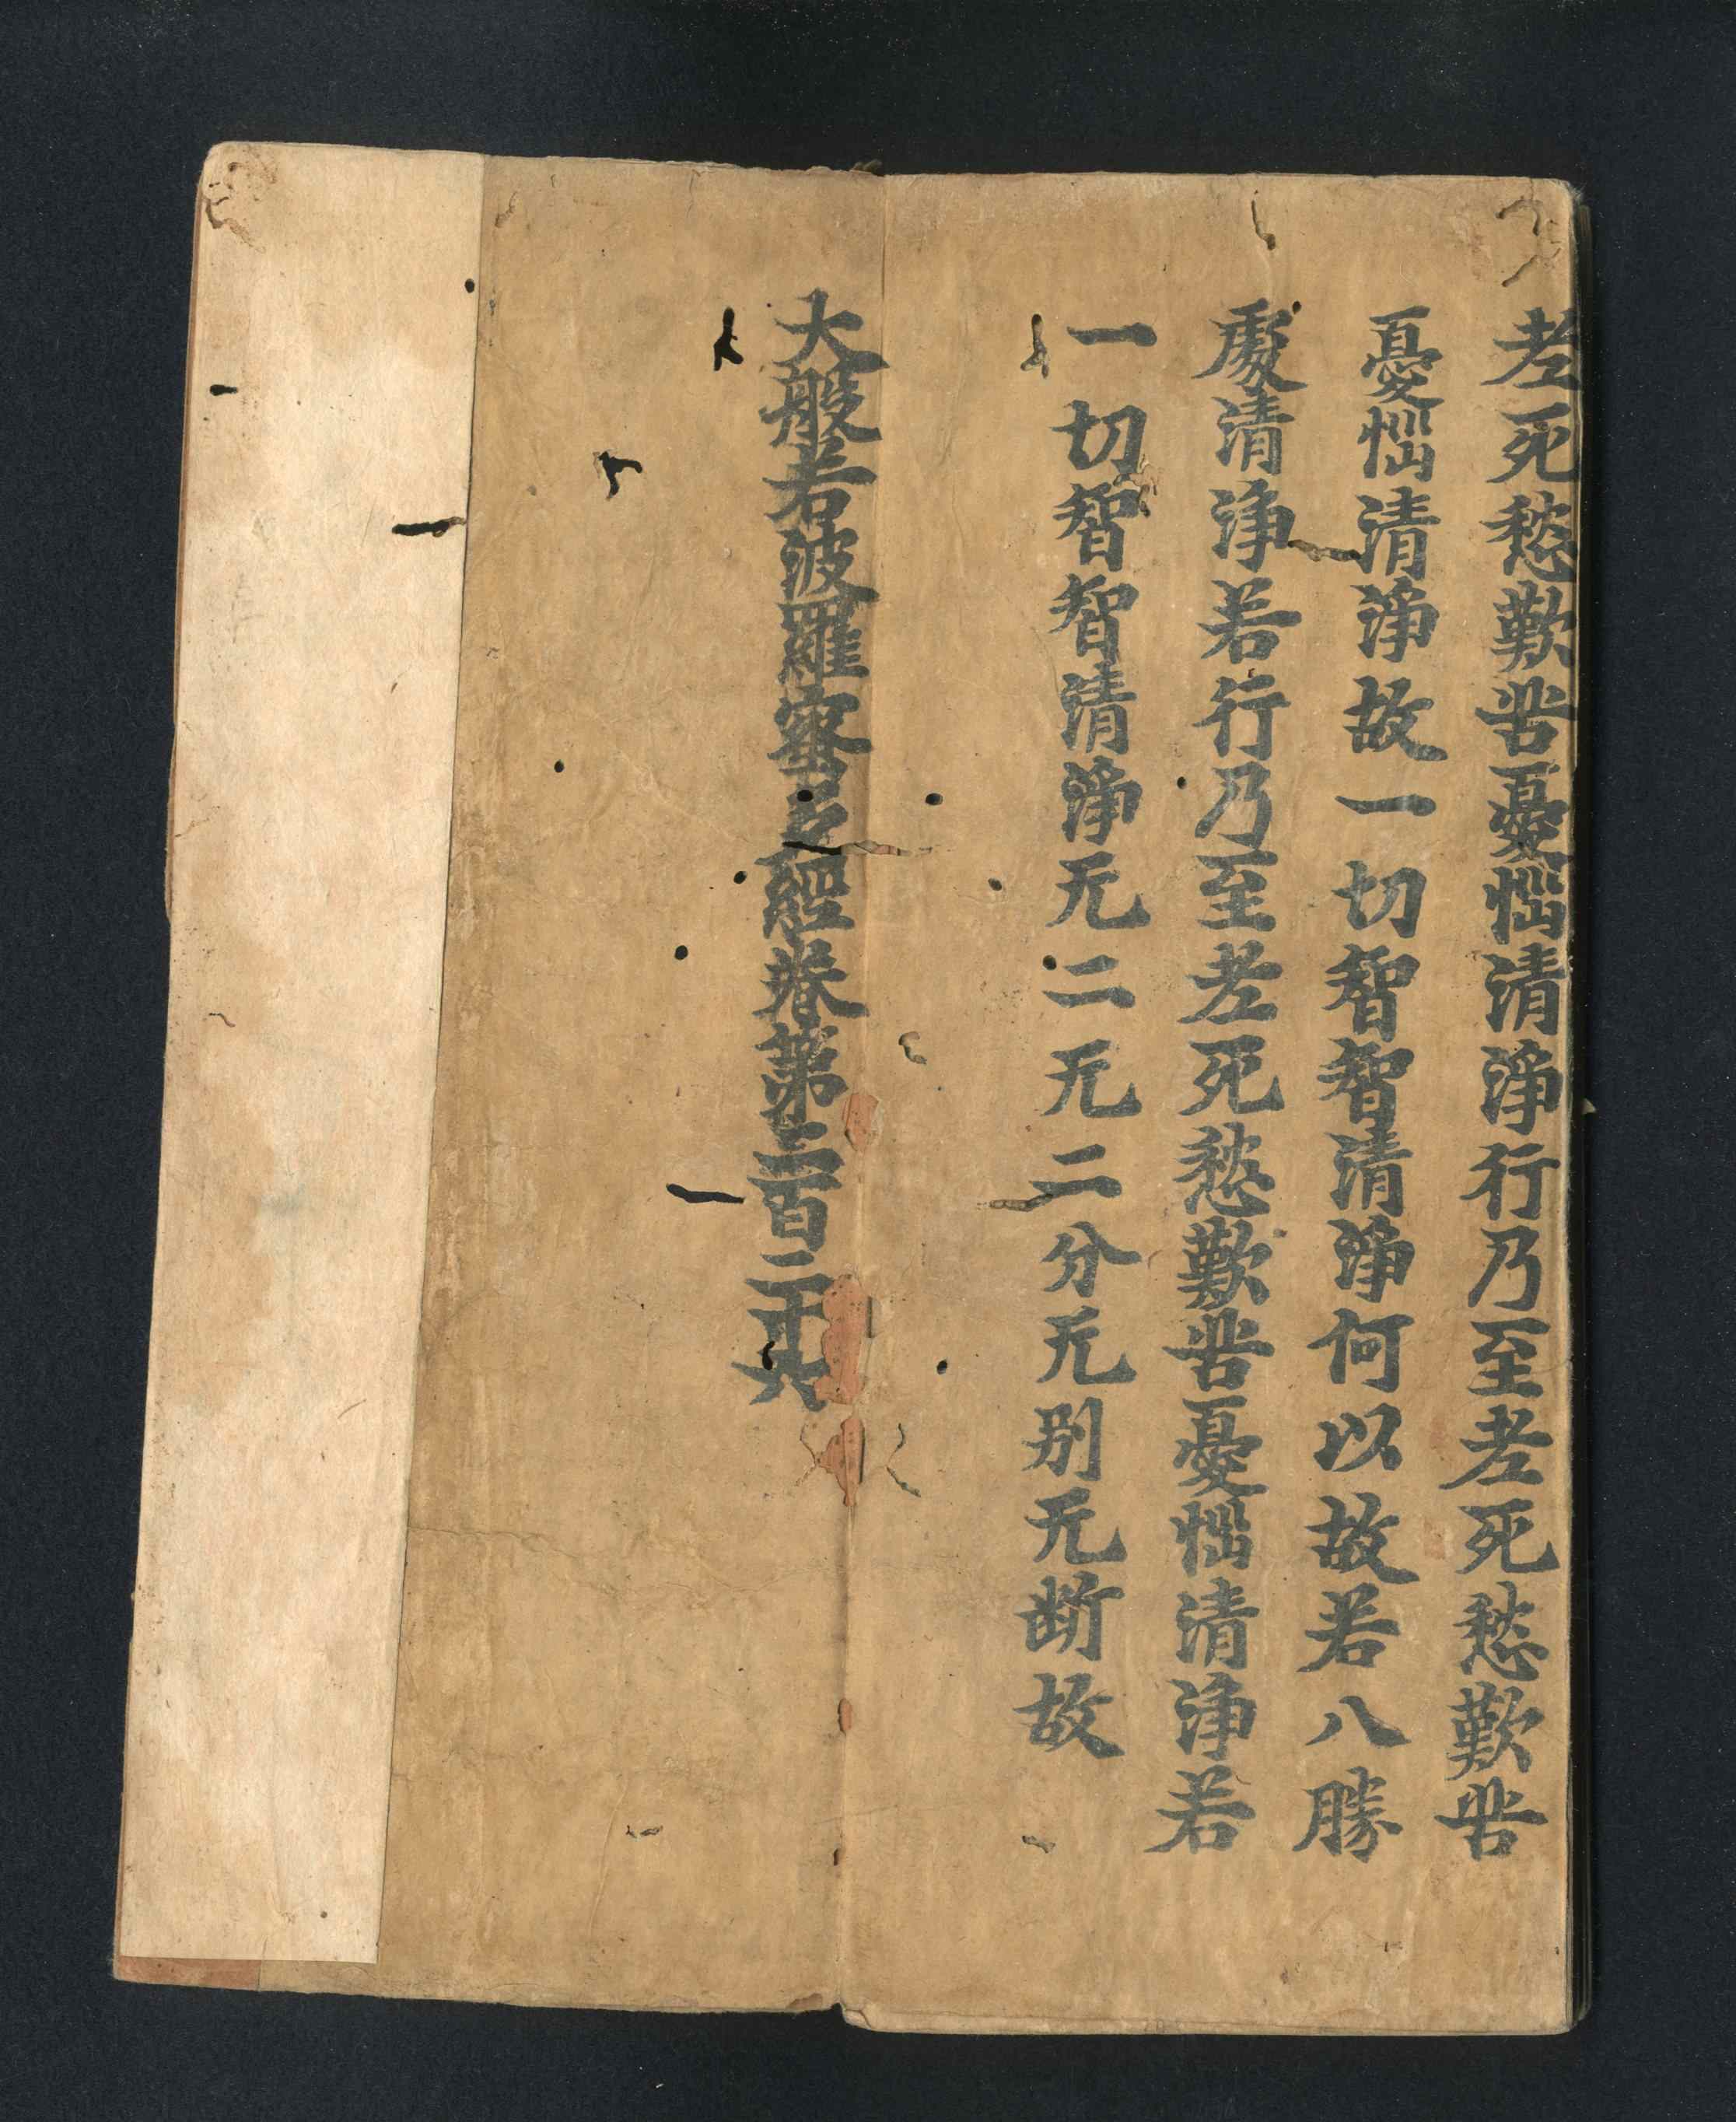 老死愁歎苦憂惱清淨行乃至老死愁歎苦
憂惱清淨故一切智智清淨何以故若八勝
處清淨若行乃至老死愁歎苦憂惱清淨若
一切智智清淨无二无二分无别无断故
大般若波羅蜜多經卷第二百二十六